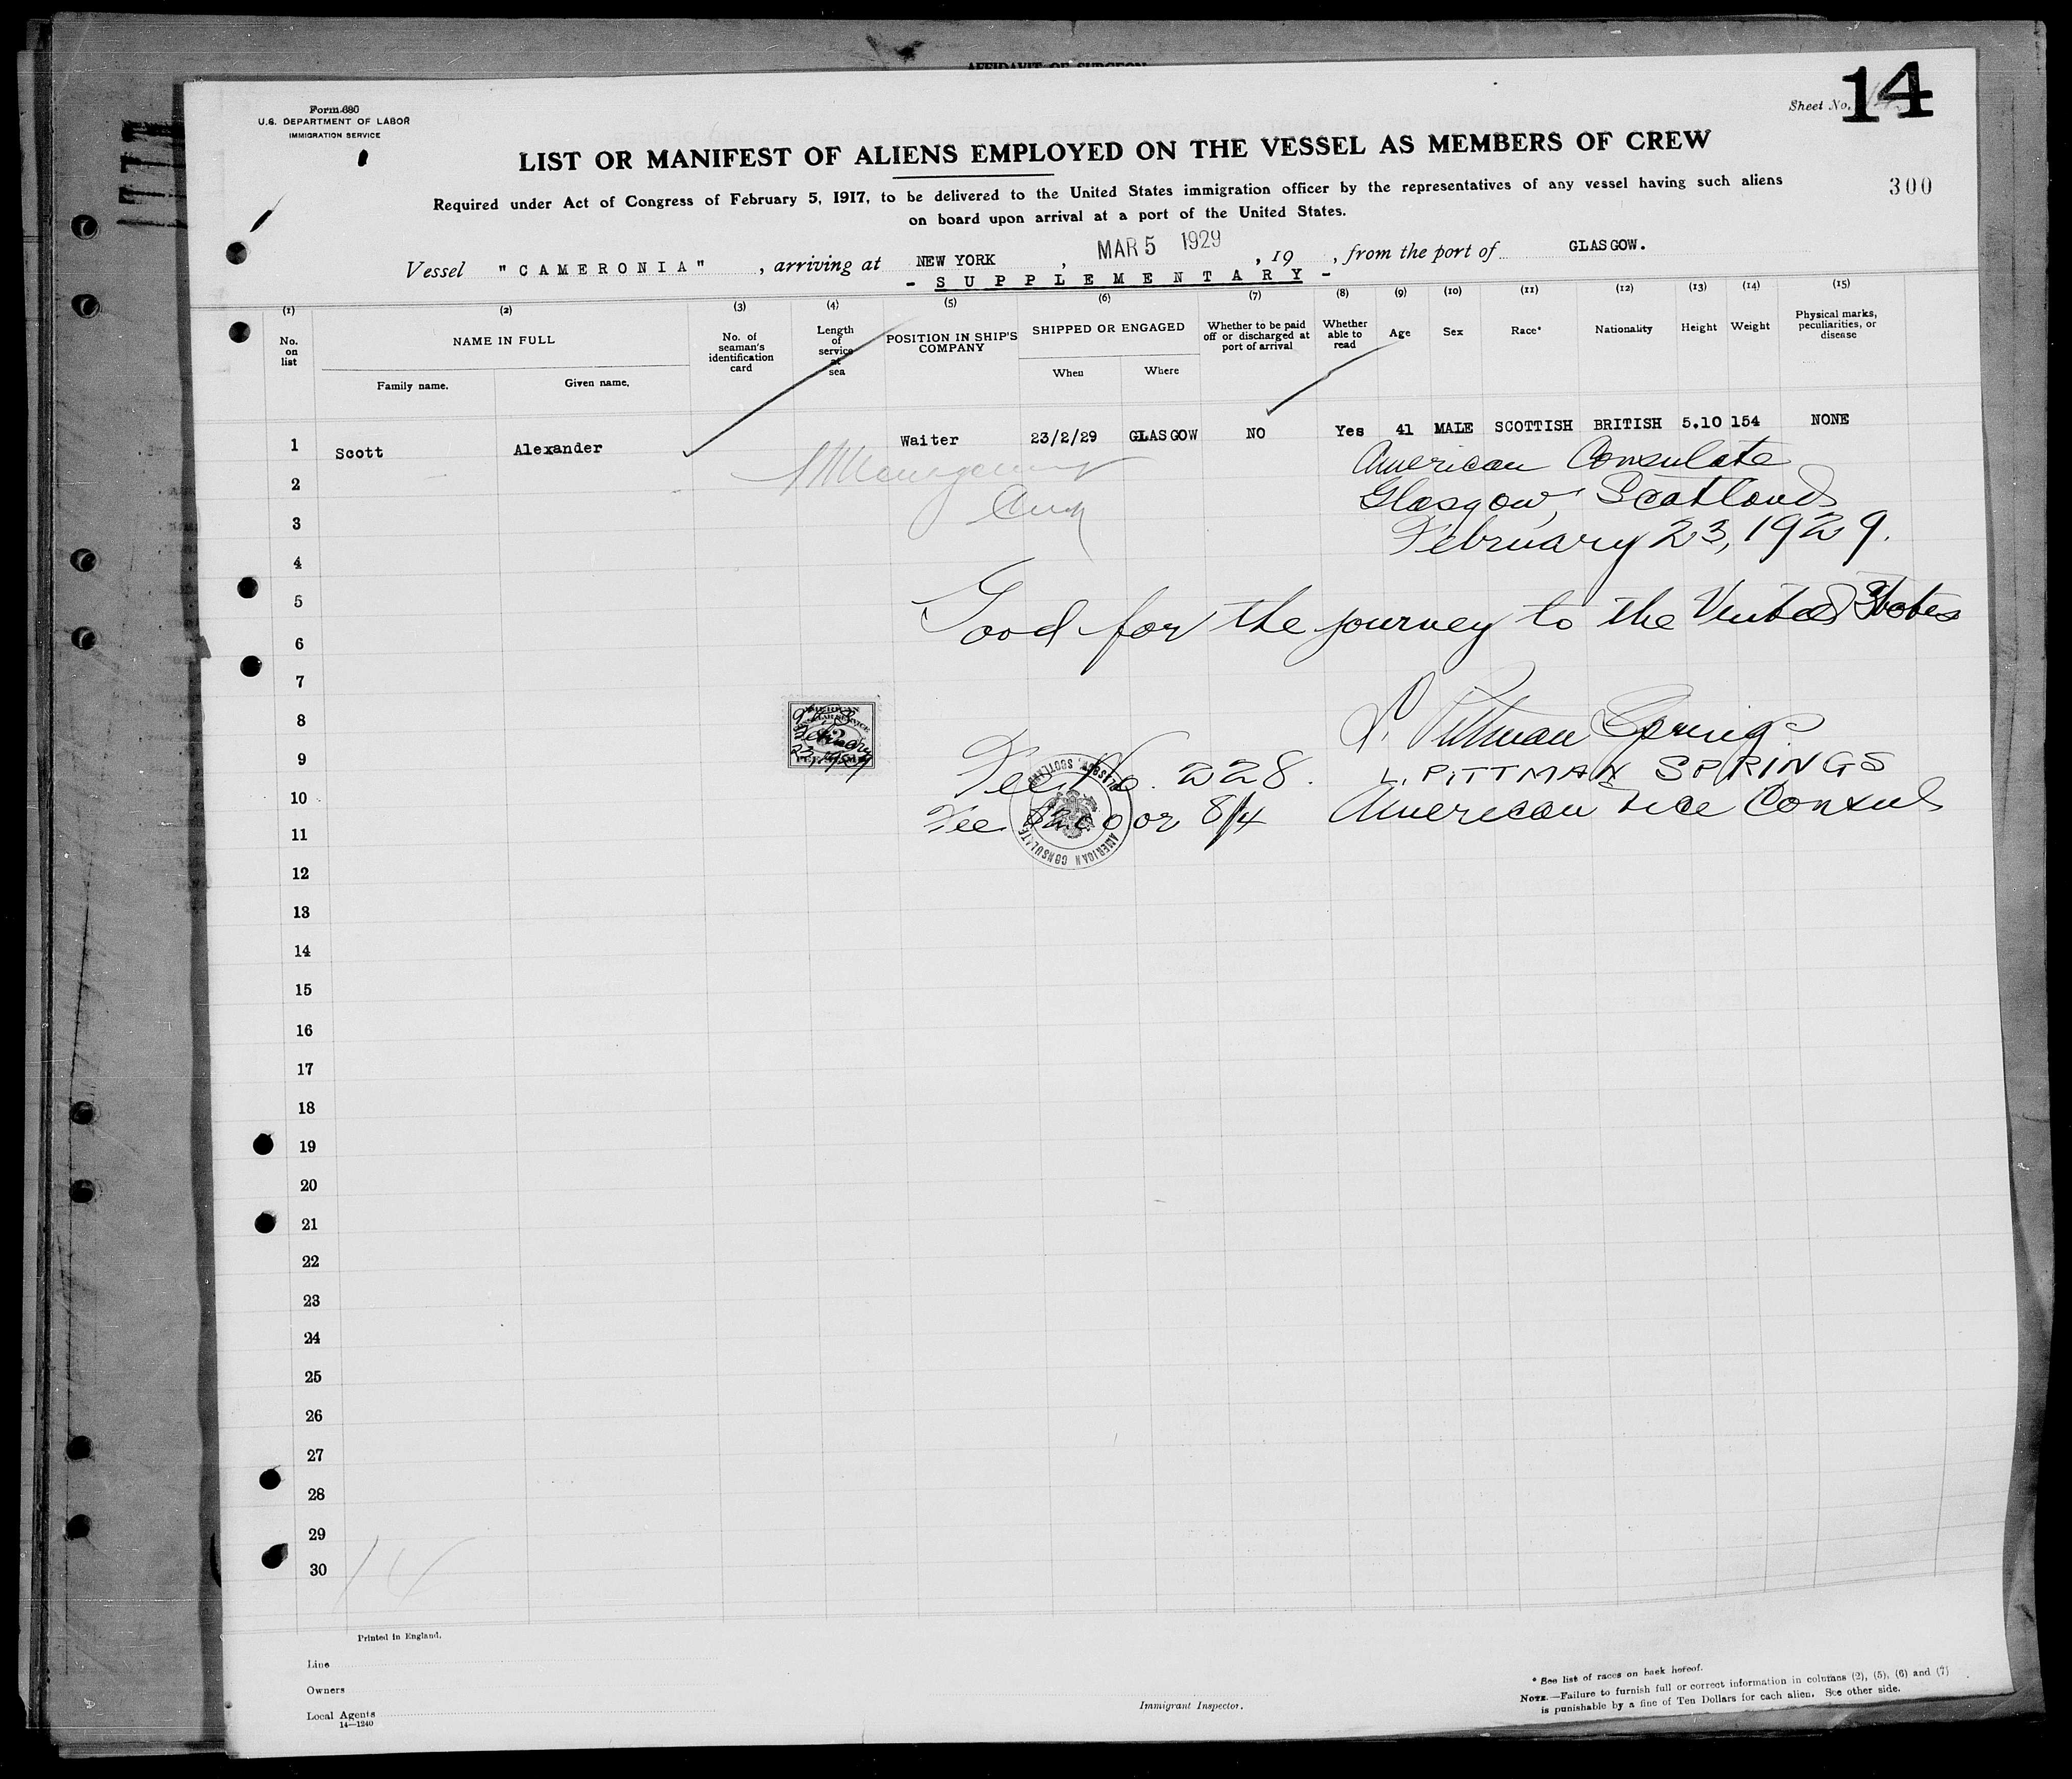 AFFIDAVIT OF SURGEON
Form 680
U.S. DEPARTMENT OF LABOR
IMMIGRATION SERVICE
Sheet No. 14
LIST OR MANIFEST OF ALIENS EMPLOYED ON THE VESSEL AS MEMBERS OF CREW
300
Required under Act of Congress of February 5, 1917, to be delivered to the United States immigration officer by the representatives of any vessel having such aliens
on board upon arrival at a port of the United States.
Vessel "CAMERONIA", arriving at NEW YORK, MAR 5 1929, 19 , from the port of GLASGOW.
- SUPPLEMENTARY -
(1) (2) (3) (4) (5) (6) (7) (8) (9) (10) (11) (12) (13) (14) (15)
No. on list
NAME IN FULL
Family name.
Given name.
No. of seaman's identification card
Length of service at sea
POSITION IN SHIP'S COMPANY
SHIPPED OR ENGAGED
When
Where
Whether to be paid off or discharged at port of arrival
Whether able to read
Age
Sex
Race*
Nationality
Height
Weight
Physical marks, peculiarities, or disease
1 Scott Alexander Waiter 23/2/29 GLASGOW NO Yes 41 MALE SCOTTISH BRITISH 5.10 154 NONE
American Consulate
2
Glasgow, Scotland
3
February 23, 1929.
4
5
Good for the journey to the United States
6
7
8
L. Pittman Springs
9
Fee No. 228. L. PITTMAN SPRINGS
10
Fee $2.00 or 8/4 American Vice Consul
AMERICAN CONSULATE GLASGOW, SCOTLAND
11
12
13
14
15
16
17
18
19
20
21
22
23
24
25
26
27
28
29
30
14
Printed in England.
Line
Owners
Local Agents
14—1240
Immigrant Inspector.
* See list of races on back hereof.
NOTE.—Failure to furnish full or correct information in columns (2), (5), (6) and (7)
is punishable by a fine of Ten Dollars for each alien. See other side.